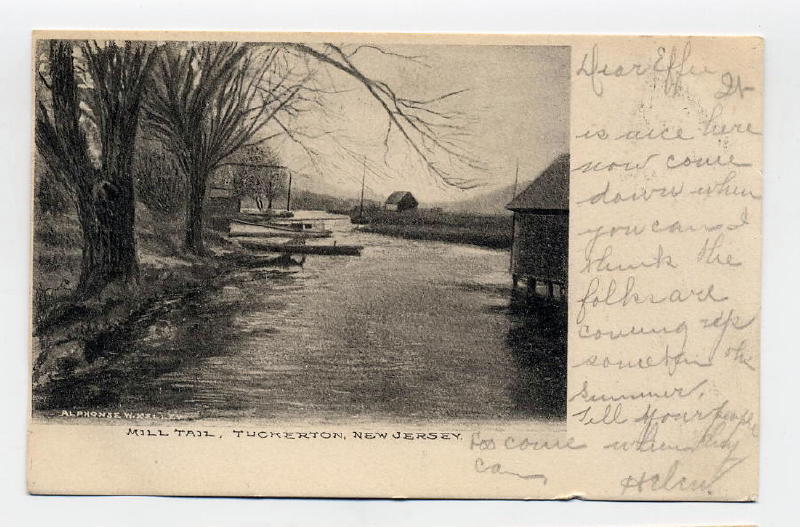 Dear Effie It
is nice here
now come
down when
you can I
think the
folks are
coming up
sometim the
Summer.
Tell your people
to come when they
can
Helen
ALPHONSE W. KELLEY
MILL TAIL, TUCKERTON, NEW JERSEY.